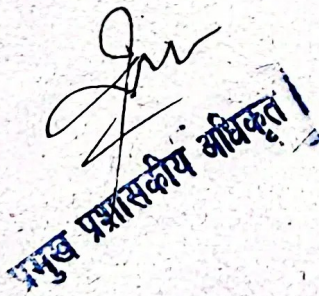 प्रमुख प्रशासकीय अधिकृत ।